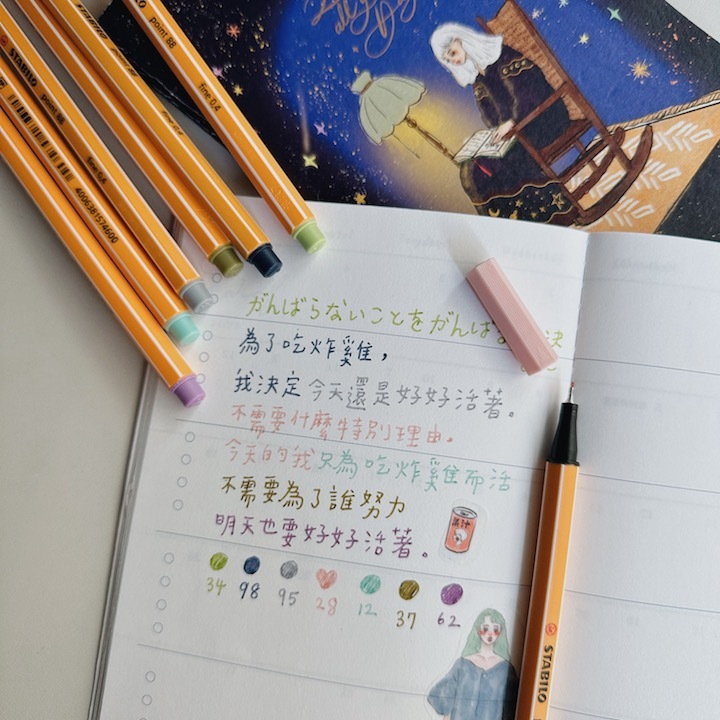 STABILO point 88 fine 0.4
point 88 fine 0.4
STABILO point 88 fine 0.4
4006381574600
がんばらないことをがんば 決
為了吃炸雞,
我決定今天還是好好活著。
不需要什麼特別理由。
今天的我只為吃炸雞而活
不需要為了誰努力
明天也要好好活著。
34 98 95 28 12 37 62
STABILO